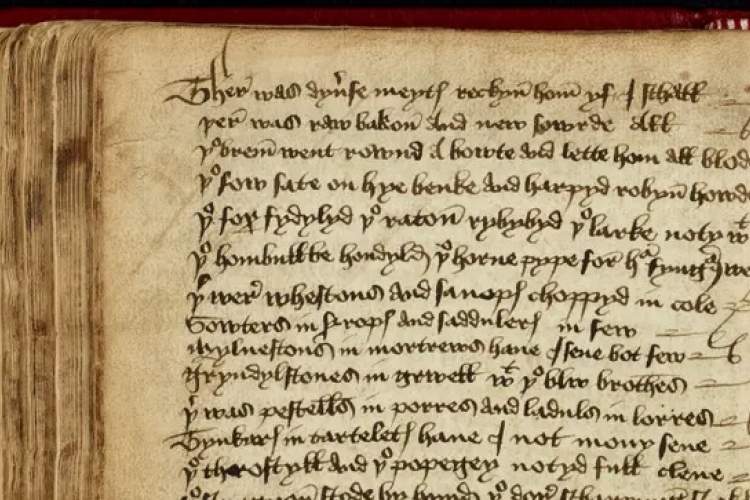 Ther was dyuse meyts rekyn hom yf I schall
þer was raw bakon and new sowrde all
þe brem went rownd a bowte and lette hom all blod
þe sow sate on hye benke and harpyd robyn howde
þe fox fydylyd þe raton rybybyd þe larke notyd wt
þe hombulbe hondyld þe horne pype for hr fyngrs we
þer wer whestons and sanops choppyd in cole
Sowters in syrops and saddulers in sew
mylnestons in mortrews haue I sene bot few
gryndylstones in grwell wt þe blw brothes
þer was pestells in porres and laduls in lorres
Tynkars in tartelets haue I not mony sene
þe throstyll and þe popegey notyd full clene